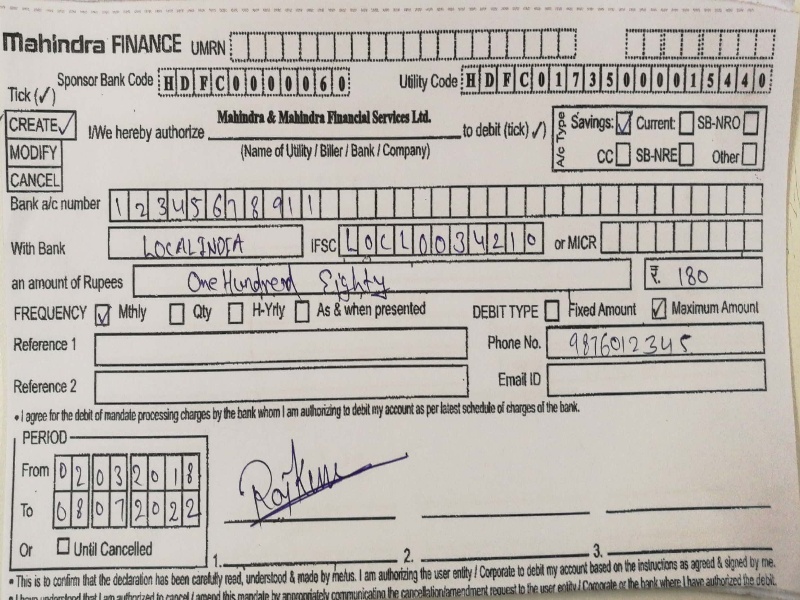 Mahindra FINANCE UMRN
Sponsor Bank Code HDFC0000060 Utility Code HDFC01735000015440
Tick (✓)
CREATE ✓ I/We hereby authorize Mahindra & Mahindra Financial Services Ltd. to debit (tick ✓) A/c Type Savings: ✓ Current: SB-NRO
MODIFY (Name of Utility / Biller / Bank / Company) CC SB-NRE Other
CANCEL
Bank a/c number 12345678911
With Bank LOCALINDIA IFSC LOCL0034210 or MICR
an amount of Rupees One Hundred Eighty ₹ 180
FREQUENCY ✓ Mthly Qty H-Yrly As & when presented DEBIT TYPE Fixed Amount ✓ Maximum Amount
Reference 1 Phone No. 9876012345
Reference 2 Email ID
• I agree for the debit of mandate processing charges by the bank whom I am authorizing to debit my account as per latest schedule of charges of the bank.
PERIOD
From 02032018
To 08072022
Or Until Cancelled
1. 2. 3.
• This is to confirm that the declaration has been carefully read, understood & made by me/us. I am authorizing the user entity / Corporate to debit my account based on the instructions as agreed & signed by me.
• I have understood that I am authorized to cancel / amend this mandate by appropriately communicating the cancellation/amendment request to the user entity / Corporate or the bank where I have authorized the debit.